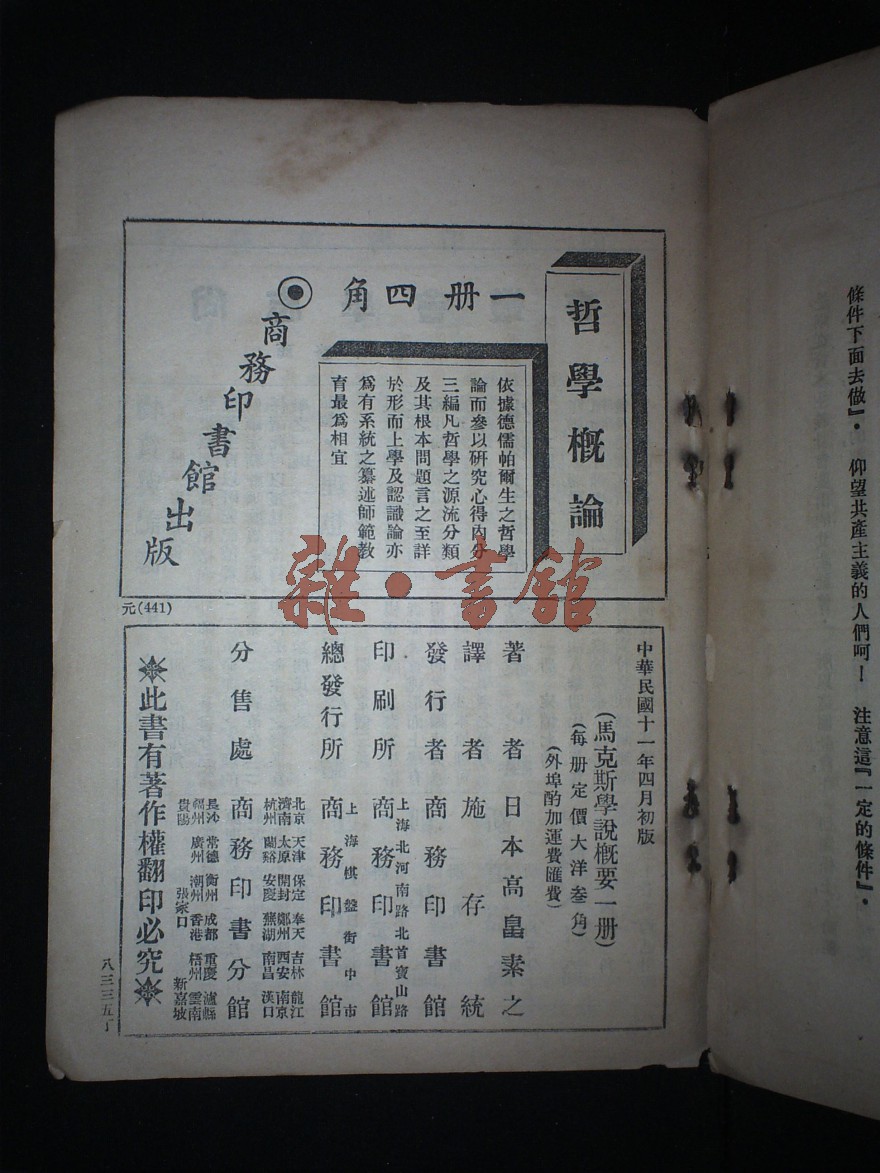 條件下面去做』。 仰望共產主義的人們呵！ 注意這『一定的條件』。
哲學概論
一册四角
依據德儒帕爾生之哲學
論而參以研究心得內分
三編凡哲學之源流分類
及其根本問題言之至詳
於形而上學及認識論亦
爲有系統之纂述師範教
育最爲相宜
商務印書館出版
元(441)
雜·書館
中華民國十一年四月初版
(馬克斯學說概要一册)
(每册定價大洋叁角)
(外埠酌加運費匯費)
著者 日本高畠素之
譯者 施存統
發行者 商務印書館
印刷所 上海北河南路北首寶山路 商務印書館
總發行所 上海棋盤街中市 商務印書館
分售處 商務印書分館
北京 天津 保定 奉天 吉林 龍江
濟南 太原 開封 鄭州 西安 南京
杭州 蘭谿 安慶 蕪湖 南昌 漢口
長沙 常德 衡州 成都 重慶 瀘縣
福州 廣州 潮州 香港 梧州 雲南
貴陽 張家口 新嘉坡
此書有著作權翻印必究
八三三五丁